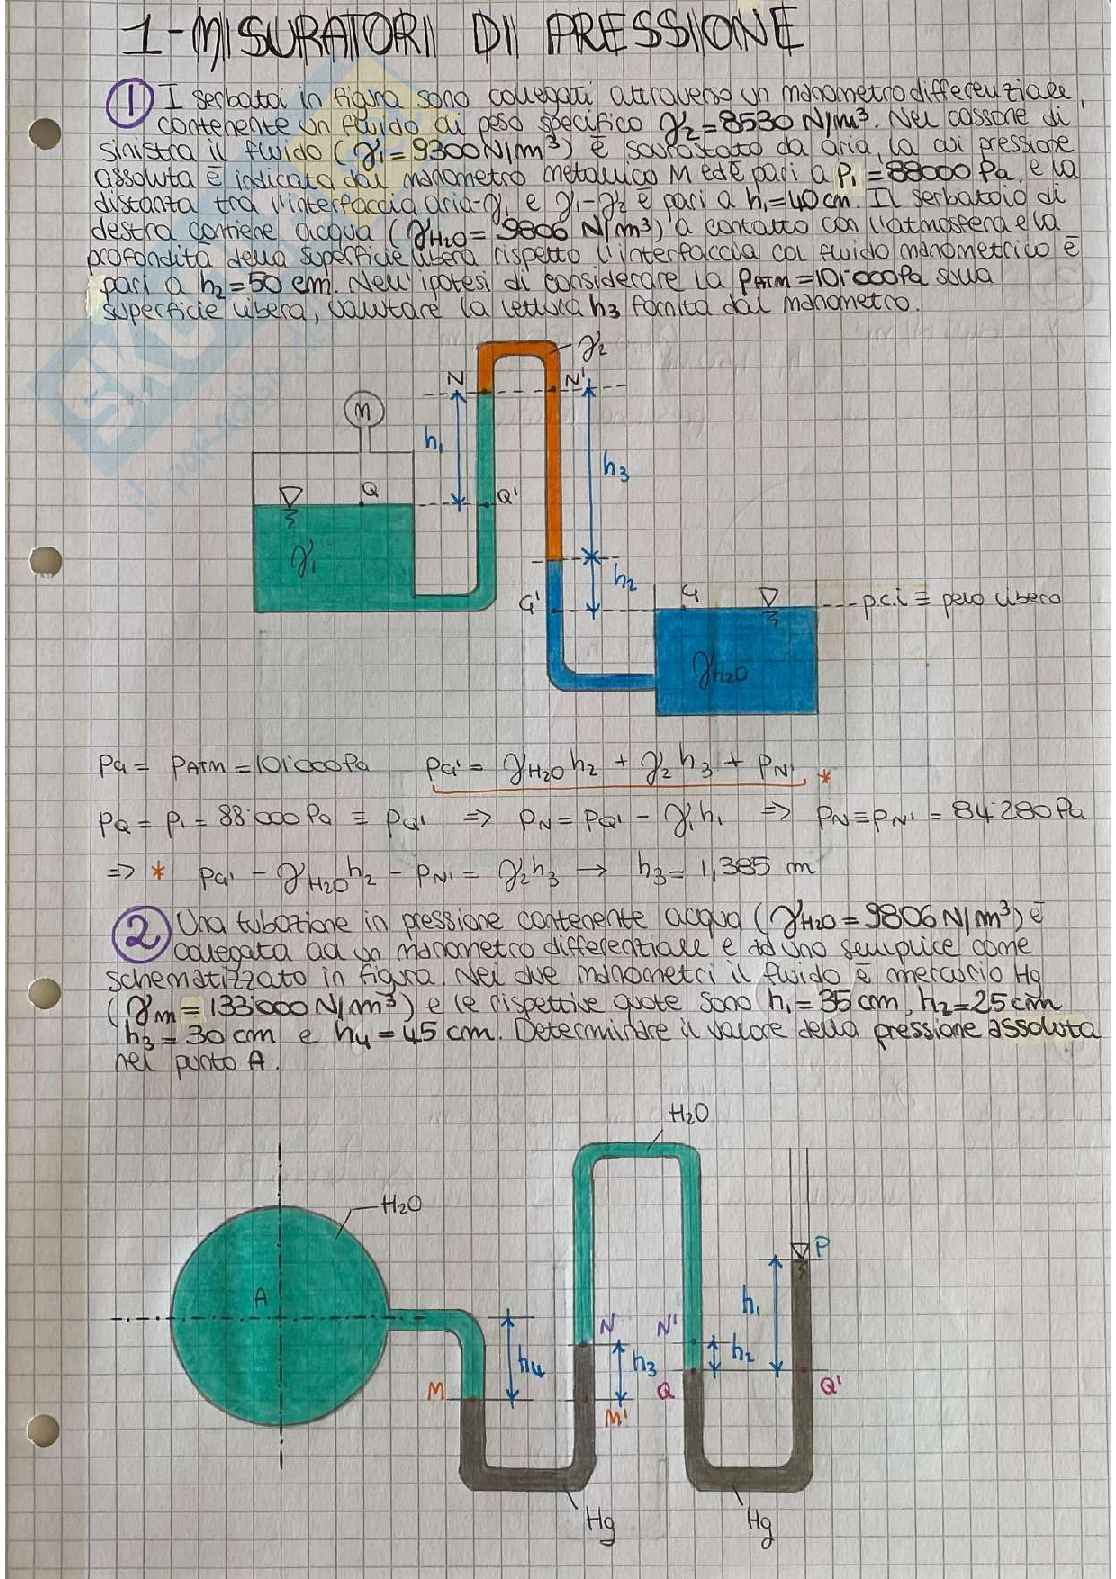 1-MISURATORI DI PRESSIONE
① I serbatoi in figura sono collegati attraverso un manometro differenziale,
contenente un fluido di peso specifico γ2=8530 N/m³. Nel cassone di
sinistra il fluido (γ1=9300N/m³) è sovrastato da aria, la cui pressione
assoluta è indicata dal manometro metallico M ed è pari a P1=88000 Pa, e la
distanza tra l'interfaccia aria-γ1 e γ1-γ2 è pari a h1=40cm. Il serbatoio di
destra contiene acqua (γH2O= 9806 N/m³) a contatto con l'atmosfera e la
profondità della superficie libera rispetto l'interfaccia col fluido manometrico è
pari a h2=50 cm. Nell'ipotesi di considerare la PATM=101'000Pa sulla
superficie libera, valutare la lettura h3 fornita dal manometro.
γ2
N
N'
M
h1
h3
Q
Q'
γ1
h2
G'
G
p.c.i ≡ pelo libero
γH2O
PG = PATM =101'000Pa PG' = γH2O h2 + γ2 h3 + PN' *
PQ = P1 = 88'000 Pa ≡ PQ' => PN = PQ' - γ1h1 => PN≡PN' = 84'280Pa
=> * PG' - γH2O h2 - PN' = γ2h3 → h3= 1,385 m
② Una tubazione in pressione contenente acqua (γH2O=9806N/m³) è
collegata ad un manometro differenziale e ad uno semplice come
schematizzato in figura. Nei due manometri il fluido è mercurio Hg
(γm=133'000 N/m³) e le rispettive quote sono h1=35 cm, h2=25cm
h3=30 cm e h4=45 cm. Determinare il valore della pressione assoluta
nel punto A.
H2O
H2O
P
A
h1
N
N'
h4
h3
h2
M
Q
Q'
M'
Hg
Hg